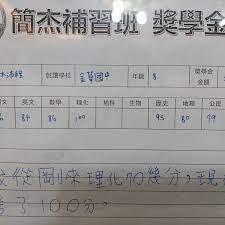 簡杰補習班 獎學金
就讀學校 金華國中 年級 8 獎學金金額
文 英文 數學 理化 地科 生物 歷史 地理 公民
84 86 100 95 80 79
從剛來理化70幾分,現
了100分。